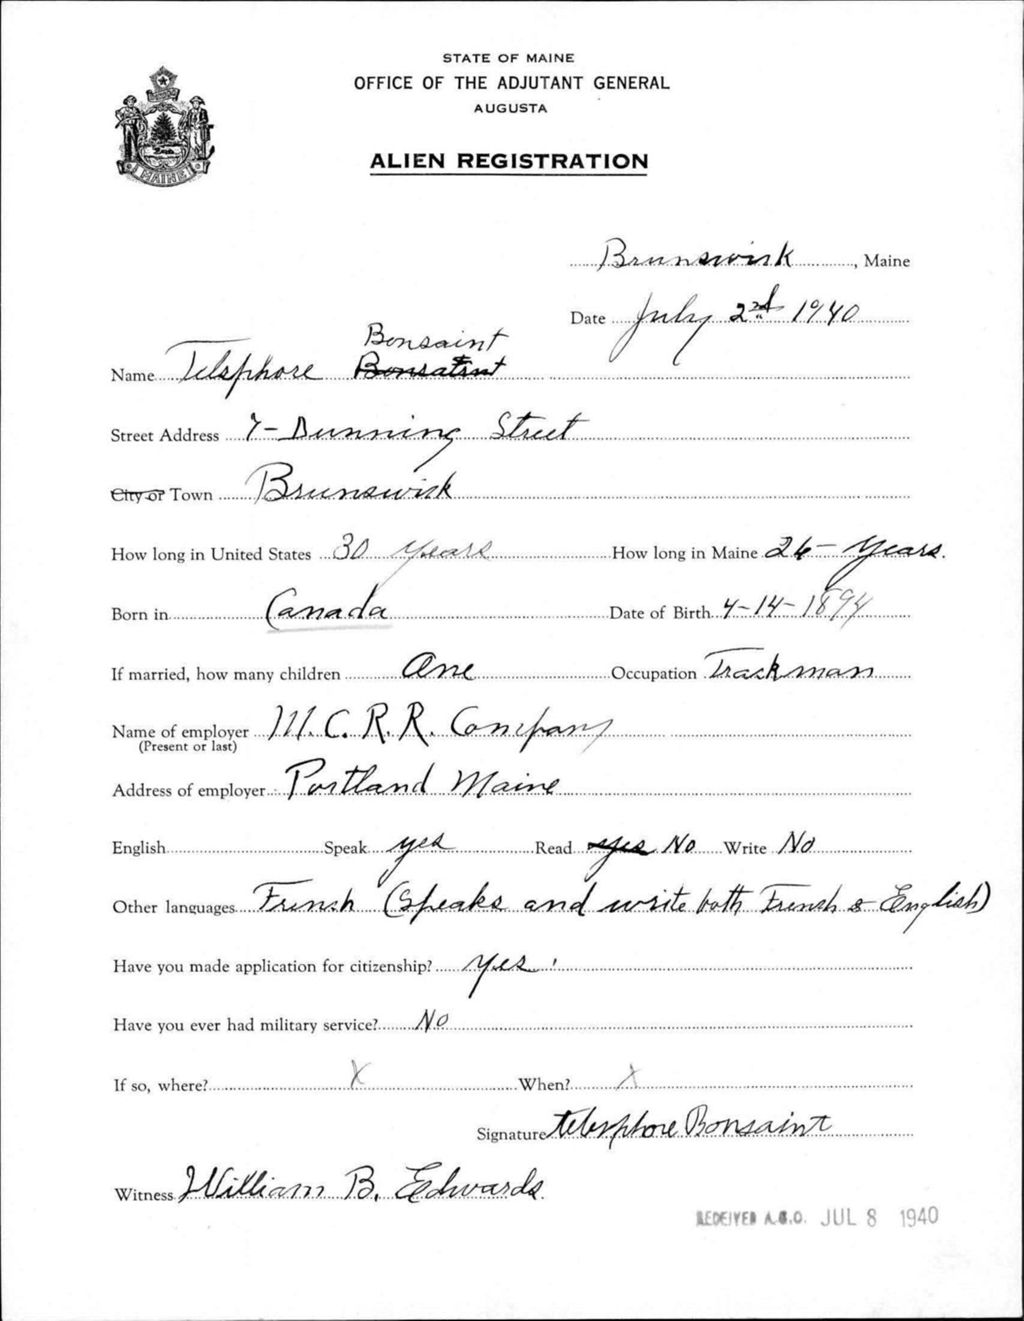 STATE OF MAINE
OFFICE OF THE ADJUTANT GENERAL
AUGUSTA
ALIEN REGISTRATION
MAINE
Brunswick, Maine
Date July 2nd 1940
Bonsaint
Name Telsphore Bonsatint
Street Address 7- Dunning Street
City or Town Brunswick
How long in United States 30 years How long in Maine 26- Years.
Born in Canada Date of Birth 4-14-1894
If married, how many children One Occupation Trackman
Name of employer M.C.R.R. Company
(Present or last)
Address of employer Portland Maine
English Speak yes Read yes No Write No
Other languages French (Speaks and write both French & English)
Have you made application for citizenship? yes.
Have you ever had military service? No
If so, where? X When? X
Signature telesphore Bonsaint
Witness William B. Edwards.
RECEIVED A.G.O. JUL 8 1940